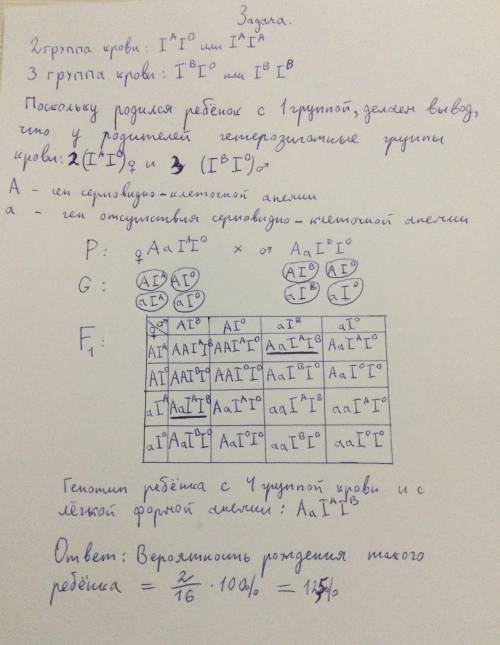 Задача.
2 группа крови: IᴬI⁰ или IᴬIᴬ
3 группа крови: IᴮI⁰ или IᴮIᴮ
Поскольку родился ребёнок с 1 группой, делаем вывод,
что у родителей гетерозиготные группы
крови: 2 (IᴬI⁰)♀ и 3 (IᴮI⁰)♂
А - ген серповидно-клеточной анемии
а - ген отсутствия серповидно-клеточной анемии
P: ♀ AaIᴬI⁰ × ♂ AaIᴮI⁰
G: AIᴬ AI⁰ AIᴮ AI⁰
aIᴬ aI⁰ aIᴮ aI⁰
F₁:
♀ ♂ AIᴮ AI⁰ aIᴮ aI⁰
AIᴬ AAIᴬIᴮ AAIᴬI⁰ AaIᴬIᴮ AaIᴬI⁰
AI⁰ AAIᴮI⁰ AAI⁰I⁰ AaIᴮI⁰ AaI⁰I⁰
aIᴬ AaIᴬIᴮ AaIᴬI⁰ aaIᴬIᴮ aaIᴬI⁰
aI⁰ AaIᴮI⁰ AaI⁰I⁰ aaIᴮI⁰ aaI⁰I⁰
Генотип ребёнка с 4 группой крови и с
лёгкой формой анемии: AaIᴬIᴮ
Ответ: Вероятность рождения такого
ребёнка = 2/16 · 100% = 12,5%